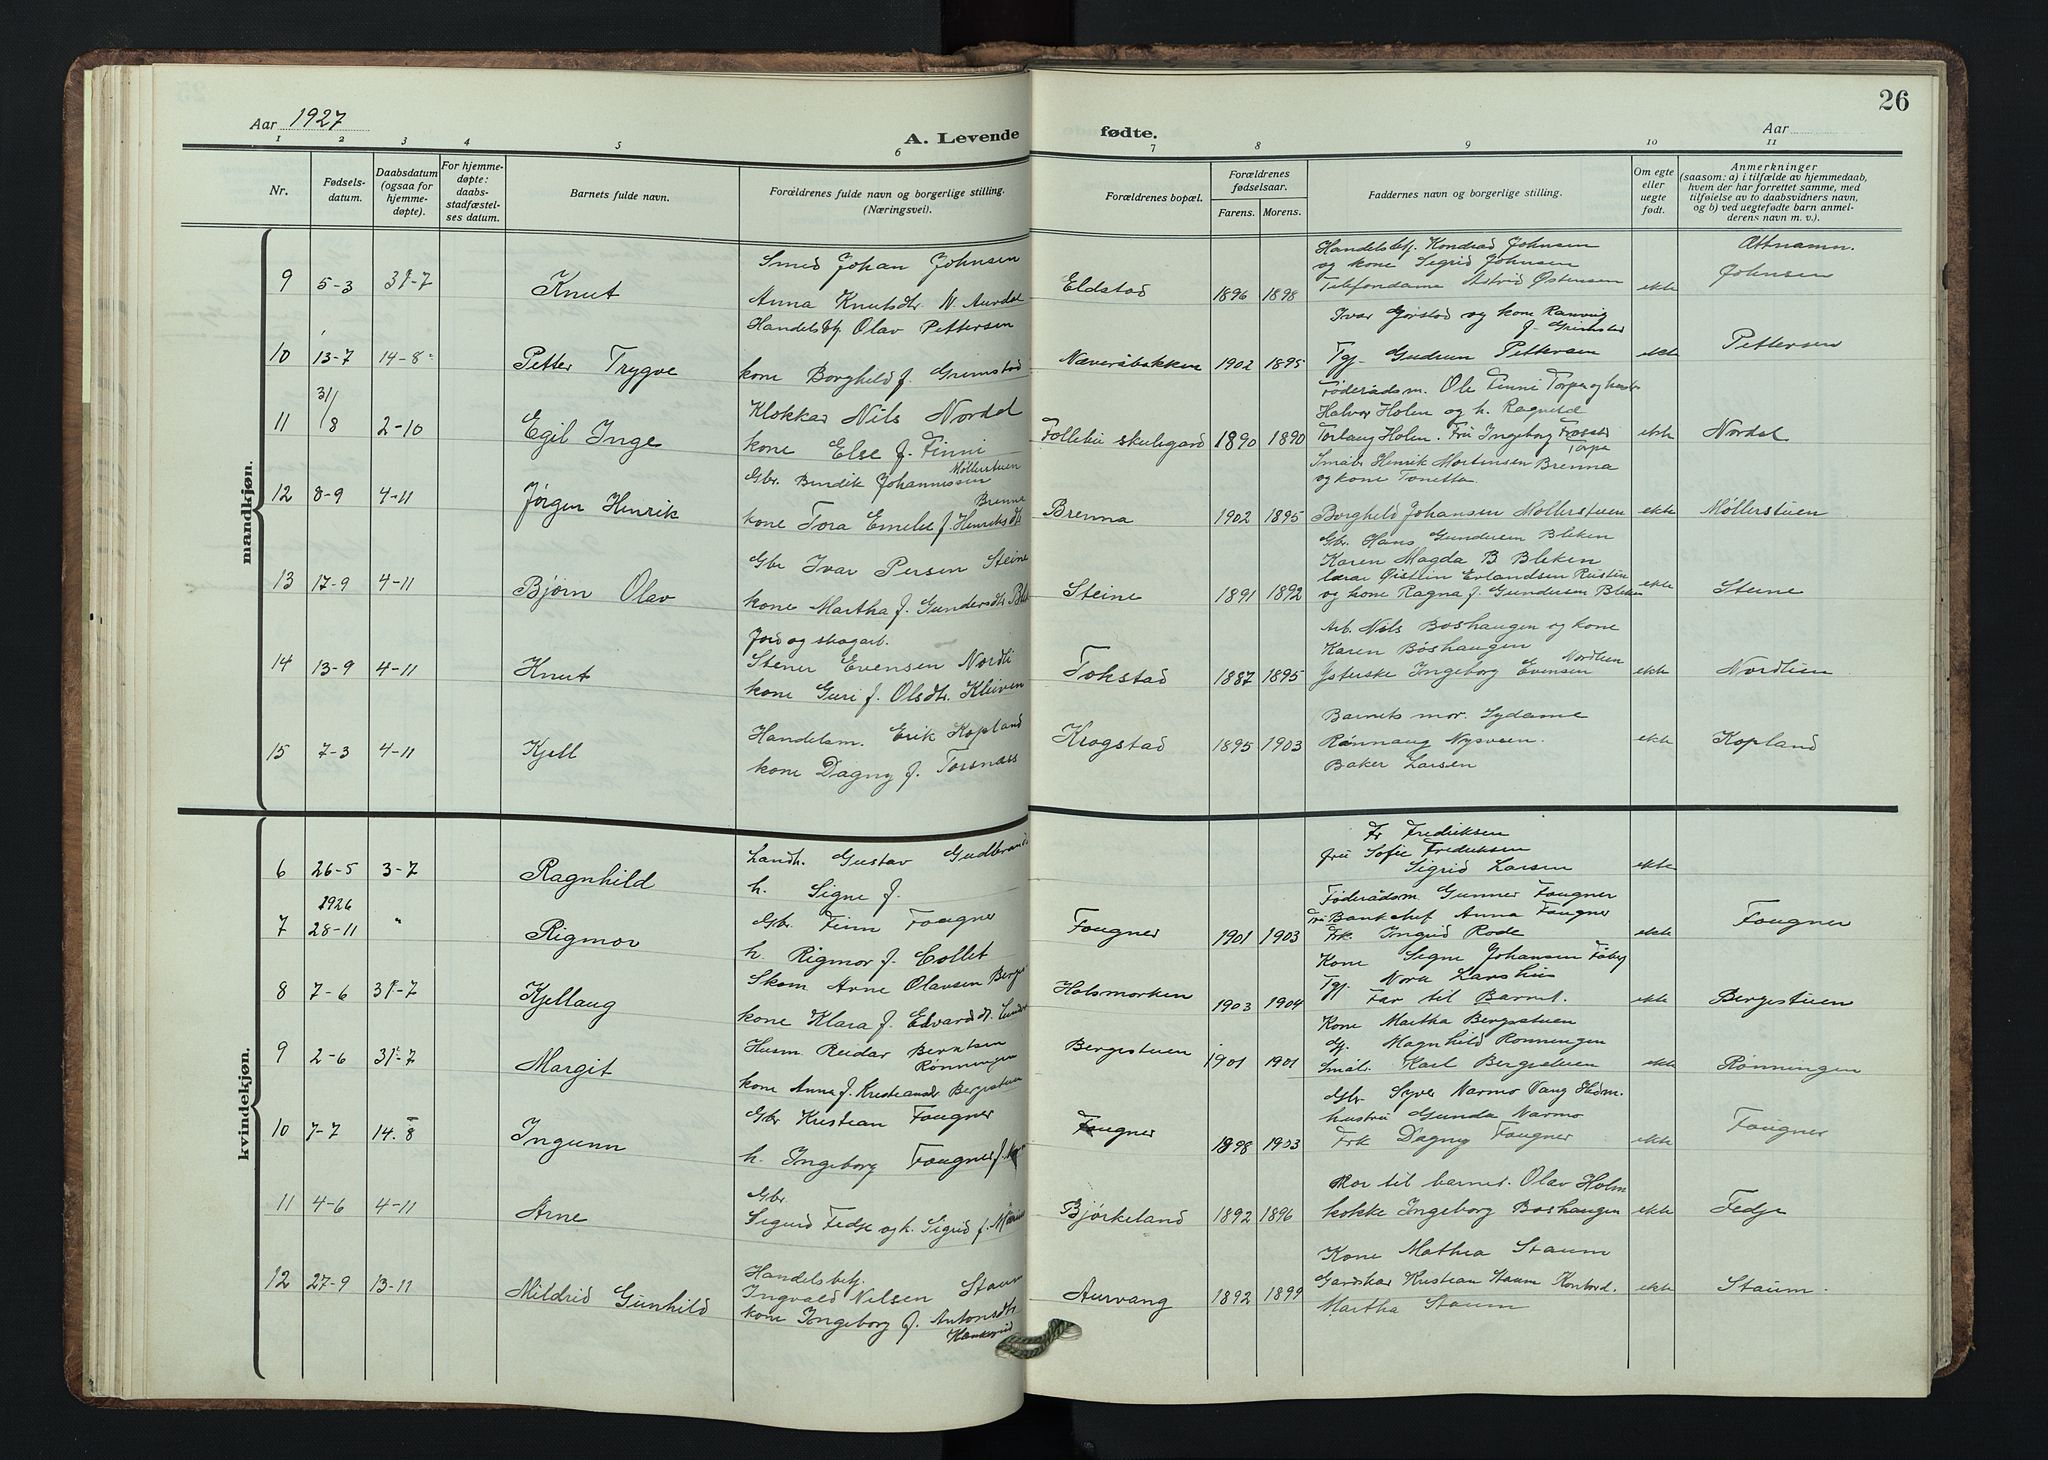 26
Aar 1927
A. Levende fødte.
Aar
1 2 3 4 5 6 7 8 9 10 11
Nr.
Fødsels-
datum.
Daabsdatum
(ogsaa for
hjemme-
døpte).
For hjemme-
døpte:
daabs-
stadfæstel-
ses datum.
Barnets fulde navn.
Forældrenes fulde navn og borgerlige stilling.
(Næringsvei).
Forældrenes bopæl.
Forældrenes
fødselsaar.
Farens. Morens.
Faddernes navn og borgerlige stilling.
Om egte
eller
uegte
født.
Anmerkninger
(saasom: a) i tilfælde av hjemmedaab,
hvem der har forrettet samme, med
tilføielse av to daabsvidners navn,
og b) ved uegtefødte barn anmel-
derens navn m. v.).
mandkjøn.
Ættnamn.
9 5-3 31-7 Knut
Smed Johan Johnsen
Anna Knutsdtr. N. Aurdal
Eldstad 1896 1898
Handelsbtj. Kondrad Johnsen
og kone Sigrid Johnsen
Telefondame Astrid Østensen
ekte Johnsen
10 13-7 14-8 Petter Trygve
Handelsbtj. Olav Pettersen
kone Borghild f. Grimstad
Næversbakken 1902 1895
Ivar Gjøstad og kone Ranveig
f. Grimstad
Tgj. Gudrun Pettersen
ekte Pettersen
11 31/8 2-10 Egil Inge
Klokkar Nils Nordal
kone Else f. Finni
Follebu skulegard 1890 1890
Føderådsm. Ole Finni Torpa og hustru
Halvor Holen og h. Ragnhild
Torlaug Holen. Fru Ingeborg
Torpa
ekte Nordal
12 8-9 4-11 Jørgen Henrik
Gbr. Bendik Johannessen
Møllerstuen
kone Tora Emelie f. Henriksdtr.
Brenna
Brenna 1902 1895
Småbr. Henrik Mortensen Brenna
og kone Tonetta.
Borghild Johansen Møllerstuen
ekte Møllerstuen
13 17-9 4-11 Bjørn Olav
Gbr Ivar Persen Steine
kone Martha f. Gundersdtr.
Steine 1891 1892
Gbr. Hans Gundersen Bleken
Karen Magda B Bleken
lærar Øistein Erlandsen Rustin
og kone Ragna f. Gundersen Bleken
ekte Steine
14 13-9 4-11 Knut
Jord og skogarb.
Stener Evensen Nordli
kone Guri f. Olsdtr. Kleiven
Tokstad 1887 1895
Arb. Nils Boshaugen og kone
Karen Bøshaugen
Nordlien
Jsterske Ingeborg Evensen
ekte Nordlien
15 7-3 4-11 Kjell
Handelsm. Erik Kopland
kone Dagny f. Torsnass
Krogstad 1895 1903
Barnets mor. Sydame
Rønnaug Nysveen.
Baker Larsen
ekte Kopland
kvindekjøn.
6 26-5 3-7 Ragnhild
Landh. Gustav
h. Signe f.
Fr Fredriksen
fru Sofie Fredriksen
Sigrid Larsen
ekte
1926
7 28-11 " Rigmor
Gbr. Finn Fougner
h. Rigmor f. Collet
Fougner 1901 1903
Føderådsm. Gunner Fougner
Fru Bankchef Anna Fougner
Frk. Ingrid Rode
ekte Fougner
8 7-6 31-7 Kjellaug
Skom Arne Olavsen
kone Klara f. Edvardsdt.
Holsmorken 1903 1904
Kone Signe Johansen
Tgj. Nora Larshus
Far til Barnet.
ekte Bergestuen
9 2-6 31-7 Margit
Husm. Reidar Berntsen
Rønningen
kone Anna f. Kristiansdr Bergestuen
Bergestuen 1901 1901
Kone Martha Bergestuen
dj. Magnhild Rønningen
Småbr. Karl Bergestuen
ekte Rønningen
10 7-7 14.8 Ingunn
Gbr Kristian Fougner
h. Ingeborg Fougner f.
Fougner 1898 1903
Gbr Syver Narmo Vang Hedm.
hustru Gunda Narmo
Frk Dagny Fougner
ekte Fougner
11 4-6 4-11 Arne
Gbr.
Sigurd Fedje og h. Sigrid f.
Bjørkeland 1892 1896
Mor til barnet. Olav Holm
kokke Ingeborg Boshaugen
ekte Fedje
12 27-9 13-11 Mildrid Gunhild
Handelsbetj.
Ingvald Nilsen Staum
kone Ingeborg f. Antonsdtr
Aurvang 1892 1899
Kone Mathea Staum
Gardskar Kristian Staum Kontord.
Martha Staum
ekte Staum.